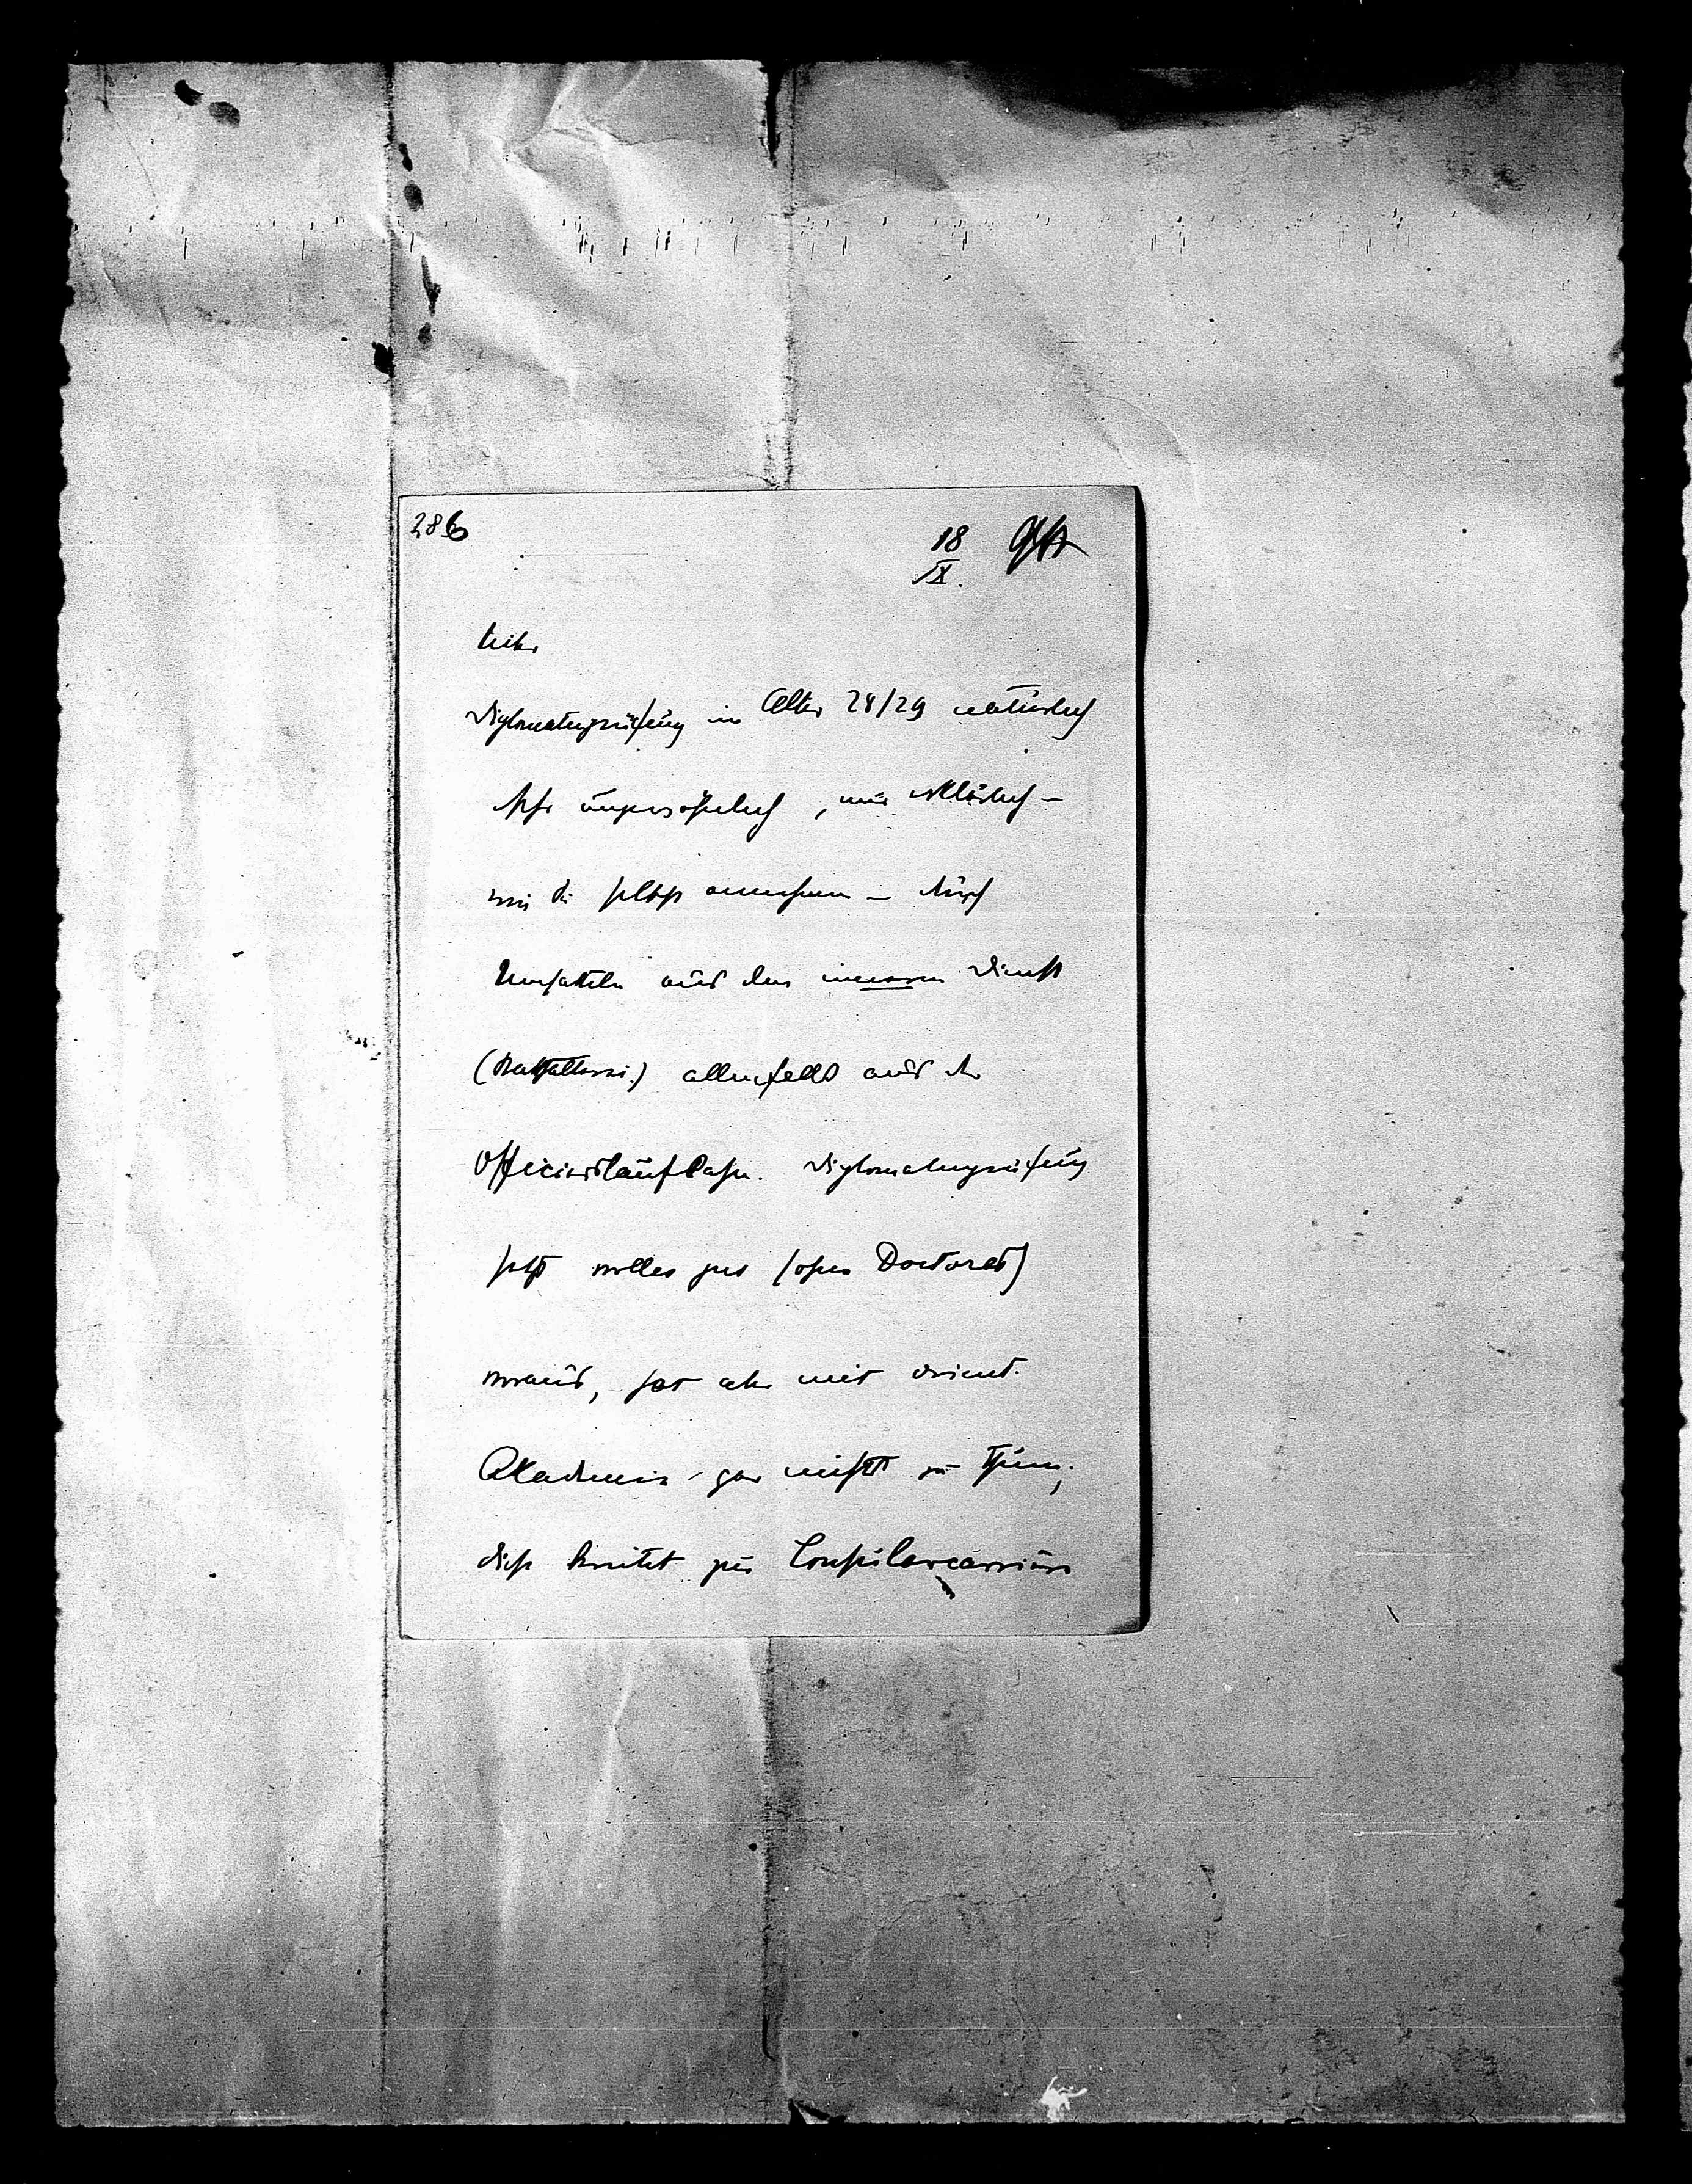 286
18
IX.
Lieber
Diplomatenprüfung im Alter 28/29 natürlich
sehr ungewöhnlich, nur erklärlich –
wie Sie selbst annehmen – durch
Umsatteln aus dem inneren Dienst
(Statthalterei) allenfalls aus der
Officierslaufbahn. Diplomatenprüfung
setzt volles jus (ohne Doctorat)
voraus, hat aber mit orient.
Akademie gar nichts zu thun;
diese bereitet zur Consularcarrière